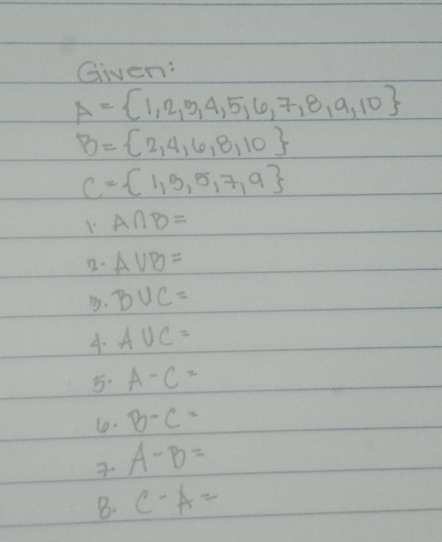 Given:
A = {1,2,3,4,5,6,7,8,9,10}
B = {2,4,6,8,10}
C = {1,3,5,7,9}
1. A∩B =
2. A∪B =
3. B∪C =
4. A∪C =
5. A-C =
6. B-C =
7. A-B =
8. C-A =